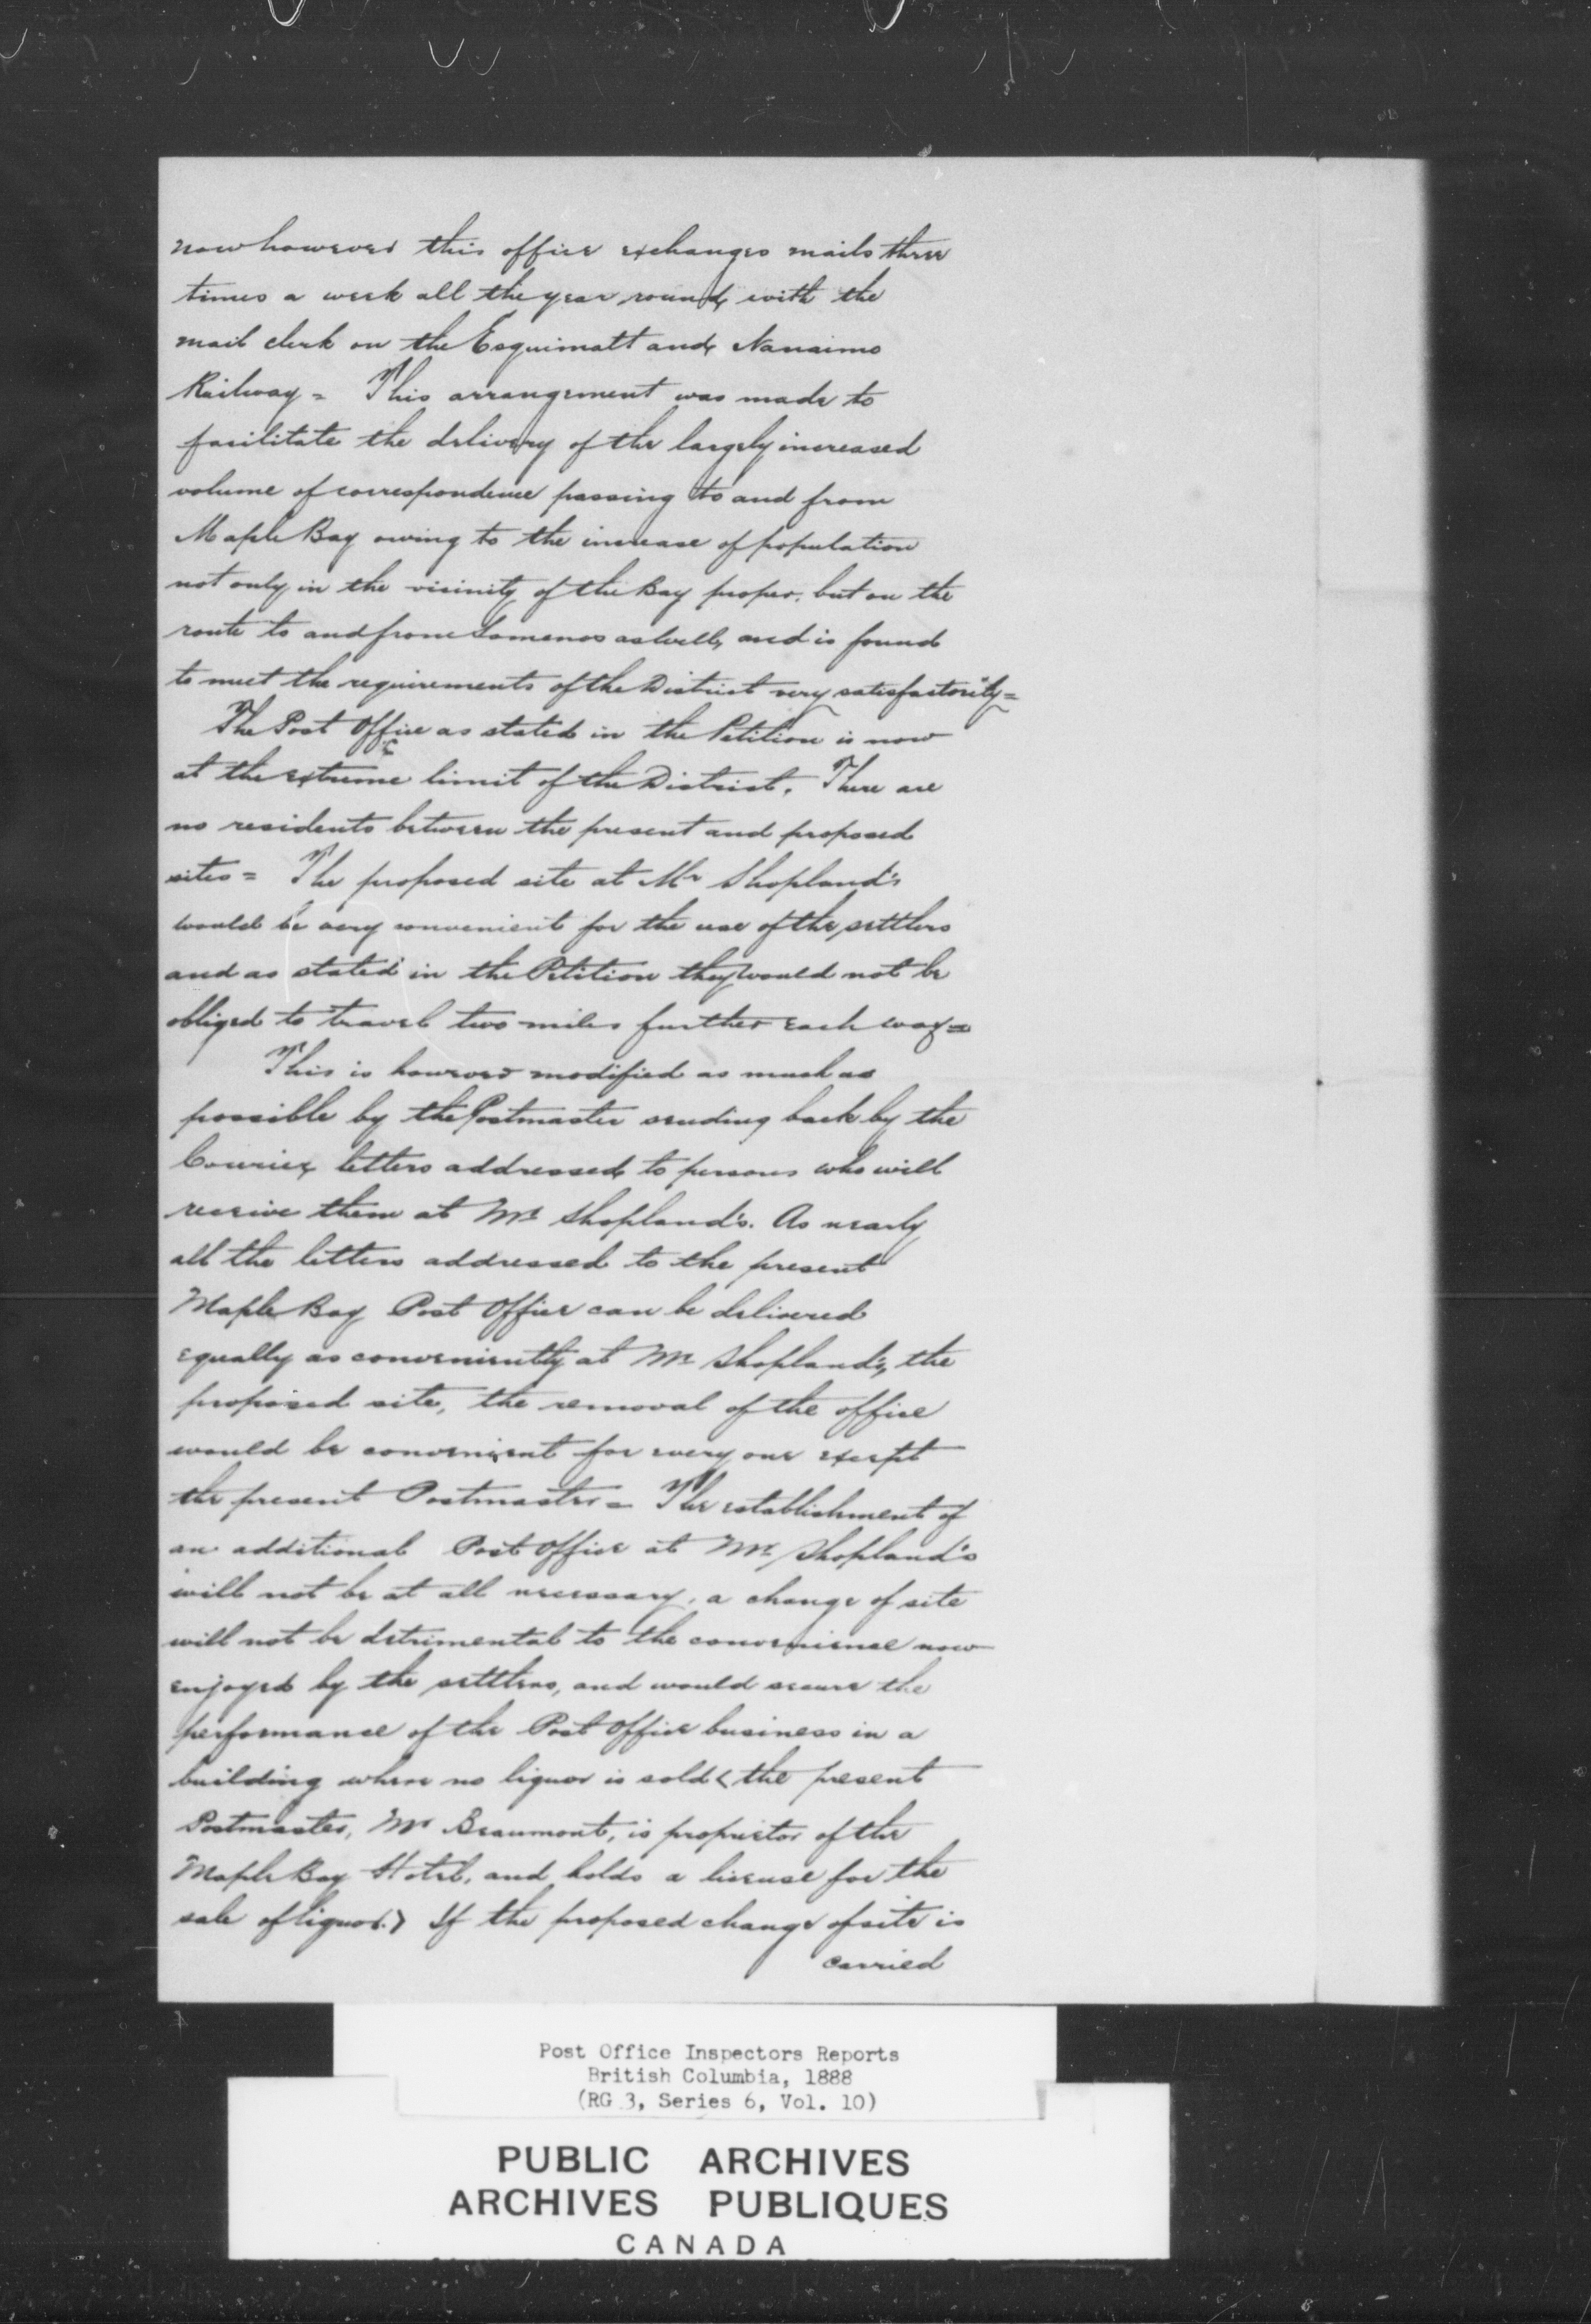 now however this office exchanges mails three
times a week all the year round, with the
mail clerk on the Esquimalt and Nanaimo
Railway = This arrangement was made to
facilitate the delivery of the largely increased
volume of correspondence passing to and from
Maple Bay owing to the increase of population
not only in the vicinity of the Bay proper, but on the
route to and from Somenos as well, and is found
to meet the requirements of the District very satisfactorily =
The Post Office as stated in the Petition is now
at the extreme limit of the District. There are
no residents between the present and proposed
sites = The proposed site at Mr Shopland's
would be very convenient for the use of the settlers
and as stated in the Petition they would not be
obliged to travel two miles further each way =
This is however modified as much as
possible by the Postmaster sending back by the
Courier, letters addressed to persons who will
receive them at Mr Shopland's. As nearly
all the letters addressed to the present
Maple Bay Post Office can be delivered
equally as conveniently at Mr Shopland's, the
proposed site, the removal of the office
would be convenient for every one except
the present Postmaster = The establishment of
an additional Post Office at Mr Shopland's
will not be at all necessary, a change of site
will not be detrimental to the convenience now
enjoyed by the settlers, and would secure the
performance of the Post Office business in a
building where no liquor is sold (the present
Postmaster, Mr Beaumont, is proprietor of the
Maple Bay Hotel, and holds a license for the
sale of liquor.) If the proposed change of site is
carried
Post Office Inspectors Reports
British Columbia, 1888
(RG 3, Series 6, Vol. 10)
PUBLIC ARCHIVES
ARCHIVES PUBLIQUES
CANADA